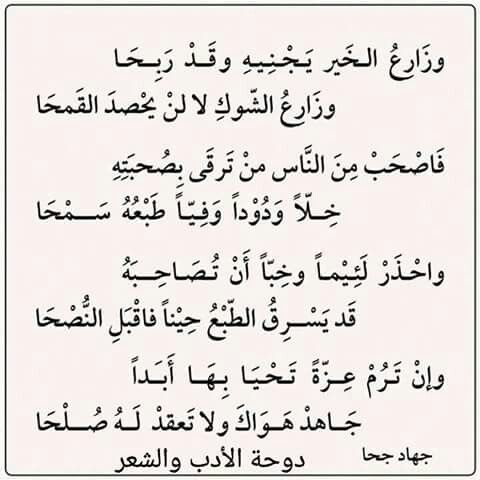 وزَارِعُ الـخَيرِ يَـجْـنِـيـهِ وقَـدْ رَبِـحَـا
وزَارِعُ الشّوكِ لا لنْ يحْصدَ القَمحَا
فَاصْحَبْ مِنَ النَّاسِ منْ تَرقَى بِصُحبَتِهِ
خِــلّاً وَدُوْداً وَفِـيّـاً طَبْعُهُ سَـــمْـحَا
واحْـذَرْ لَئِـيْـمـاً وخِـبّاً أَنْ تُـصَـاحِـــبَـهُ
قَد يَسْــرِقُ الطّبْعُ حِيْناً فاقْبَلِ النُّصْحَا
وإنْ تَـرُمْ عِــزّةً تَـحْـيَـا بِـهَـا أَبَــداً
جَـاهدْ هَـوَاكَ ولا تَعقدْ لَـهُ صُــلْـحَا
جهاد جحا
دوحة الأدب والشعر